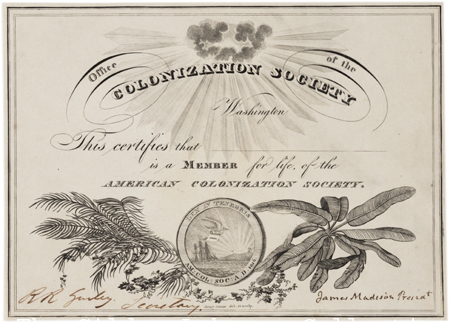 Office of the
COLONIZATION SOCIETY
Washington
This certifies that
is a MEMBER for life, of the
AMERICAN COLONIZATION SOCIETY.
AM. COL. SOC. A.D.
R R Gurley, Secretary,
James Madison Presid t